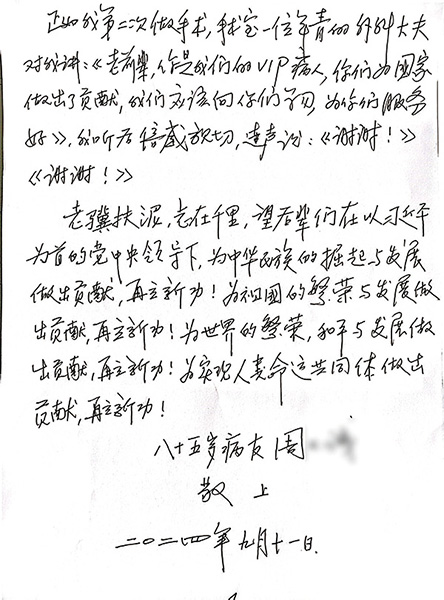 正如我第二次做手术，手术室一位年青的外科大夫
对我讲：《老前辈，你是我们的VIP病人，你们为国家
做出了贡献，我们应该向你们学习，为你们服务
好》，我听后倍感亲切，连声说：《谢谢！》
《谢谢！》
老骥扶沤，志在千里，望后辈们在以习近平
为首的党中央领导下，为中华民族的掘起与发展
做出贡献，再立新功！为祖国的繁荣与发展做
出贡献，再立新功！为世界的繁荣，和平与发展做
出贡献，再立新功！为实现人类命运共同体做出
贡献，再立新功！
八十五岁病友 周
敬上
二〇二四年九月十一日.